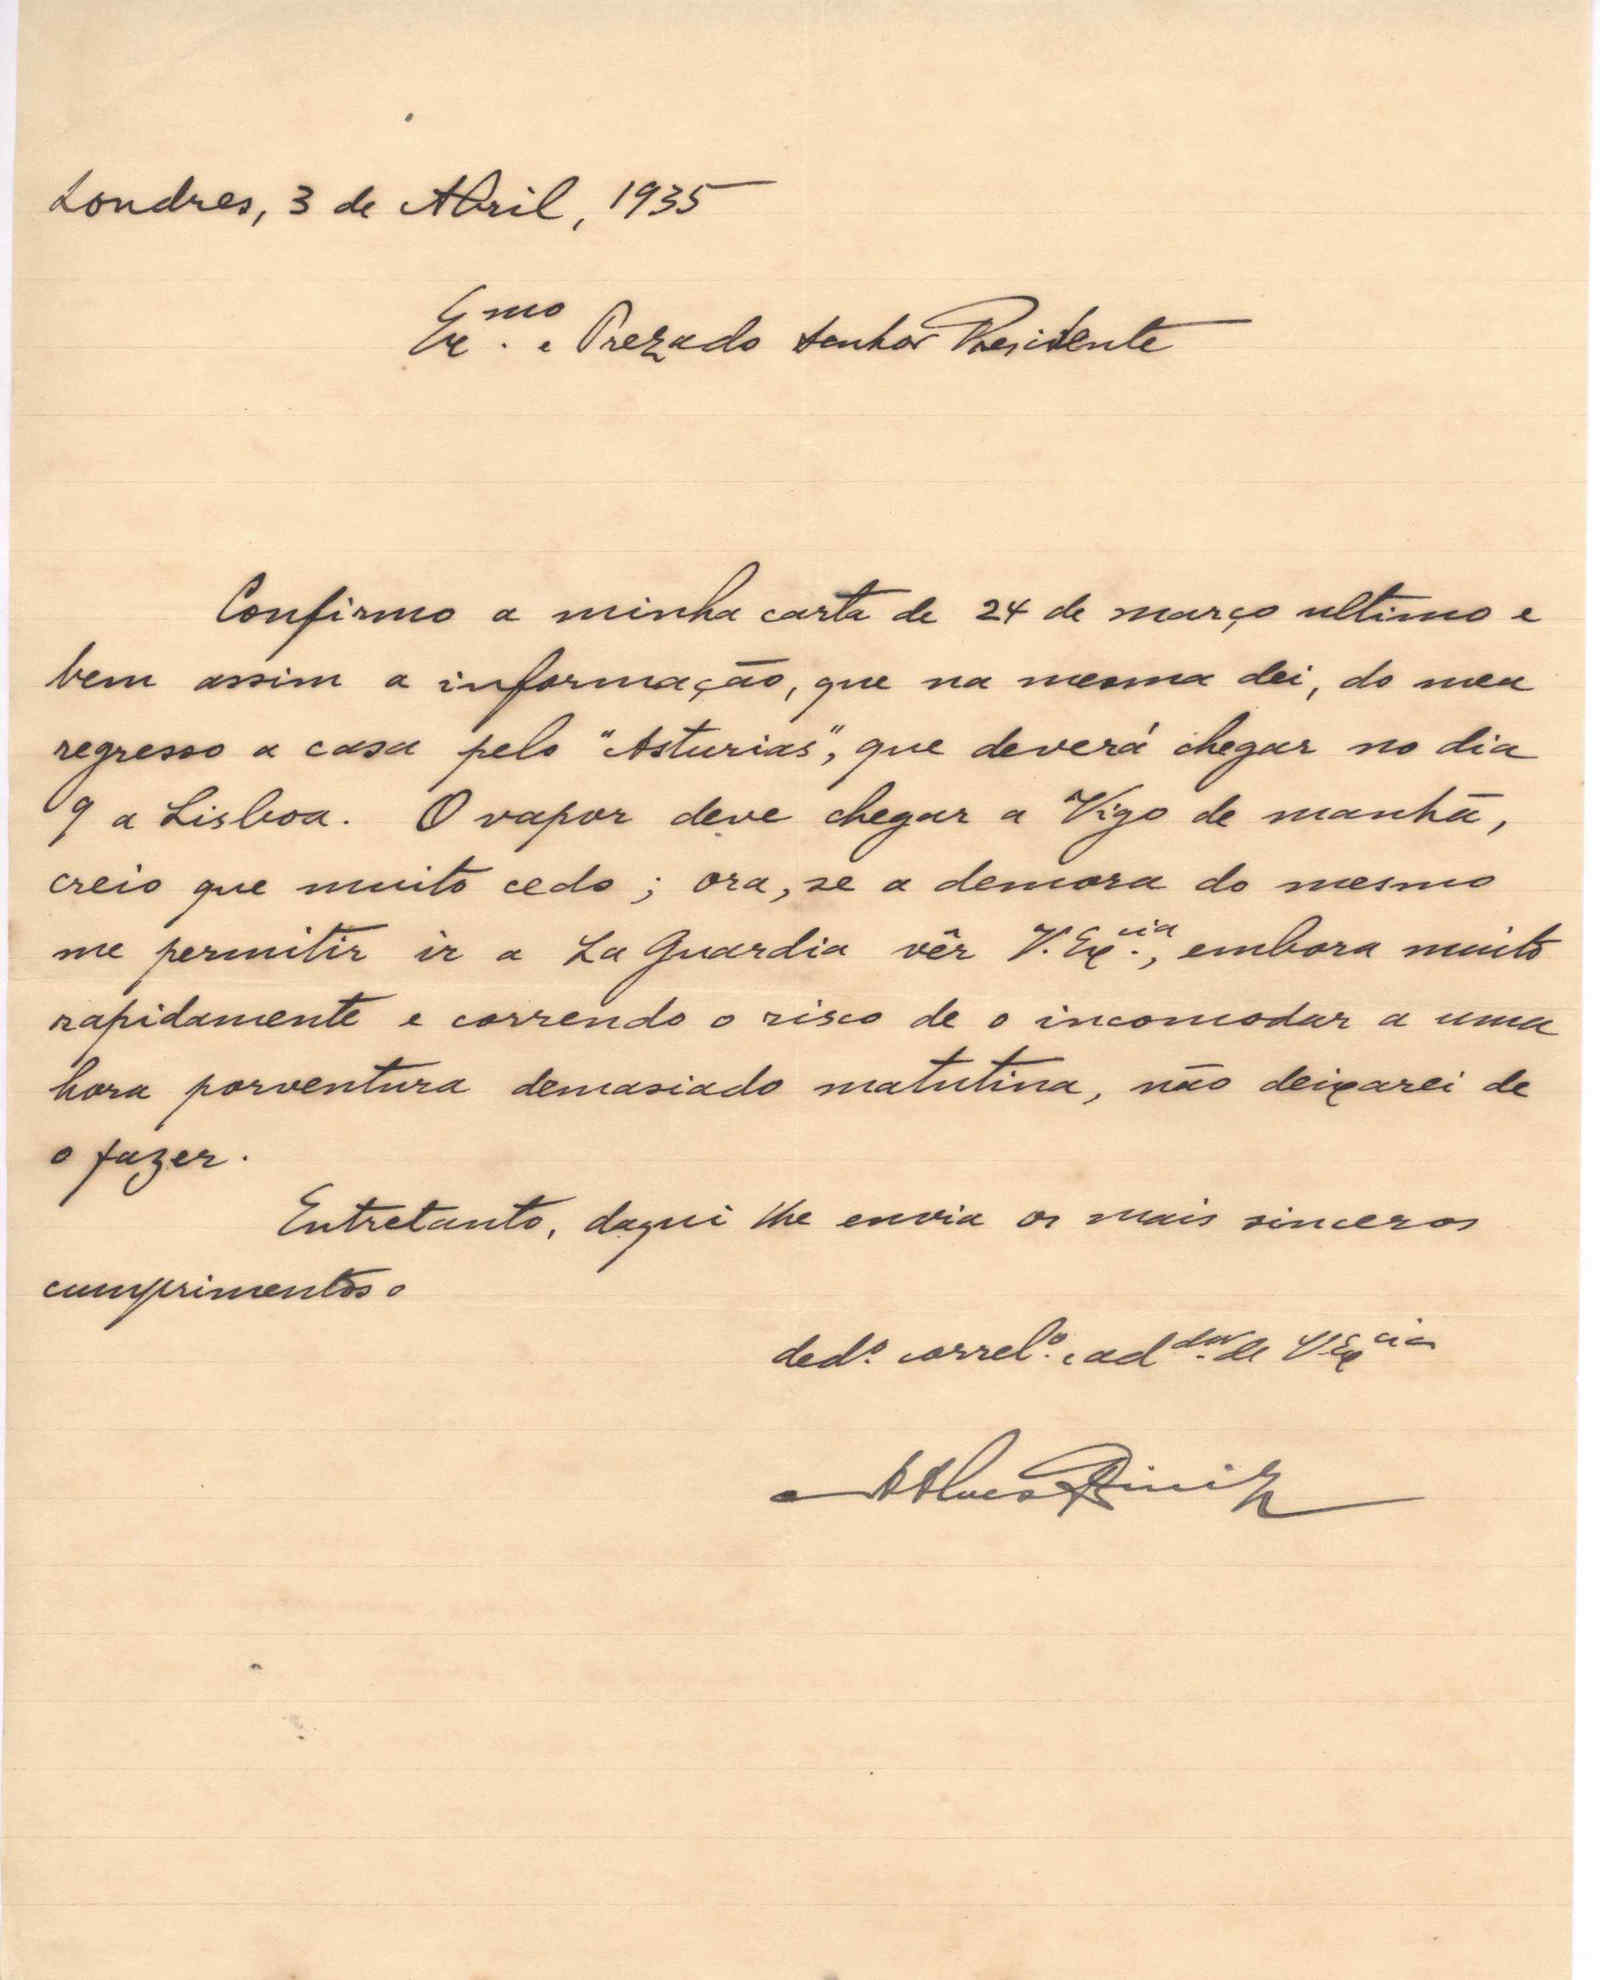 Londres, 3 de Abril, 1935
Exmo. e Prezado Senhor Presidente
Confirmo a minha carta de 24 de março ultimo e
bem assim a informação, que na mesma dei, do meu
regresso a casa pelo "Asturias", que deverá chegar no dia
9 a Lisboa. O vapor deve chegar a Vigo de manhã,
creio que muito cedo; ora, se a demora do mesmo
me permitir ir a La Guardia vêr V. Excia., embora muito
rapidamente e correndo o risco de o incomodar a uma
hora porventura demasiado matutina, não deixarei de
o fazer.
Entretanto, daqui lhe envia os mais sinceros
cumprimentos o
dedo. correlo. e addor. de V. Excia
A Alves Diniz